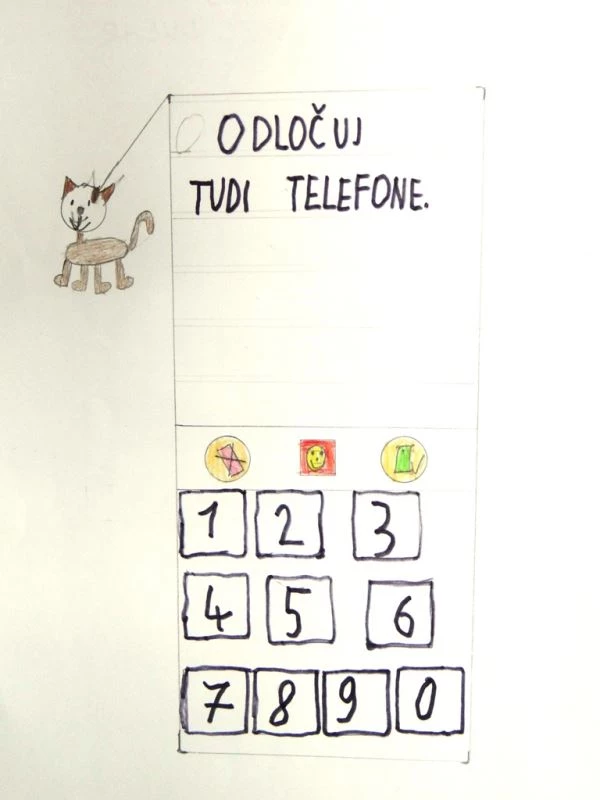 ODLOČUJ
TUDI TELEFONE.
1 2 3
4 5 6
7 8 9 0